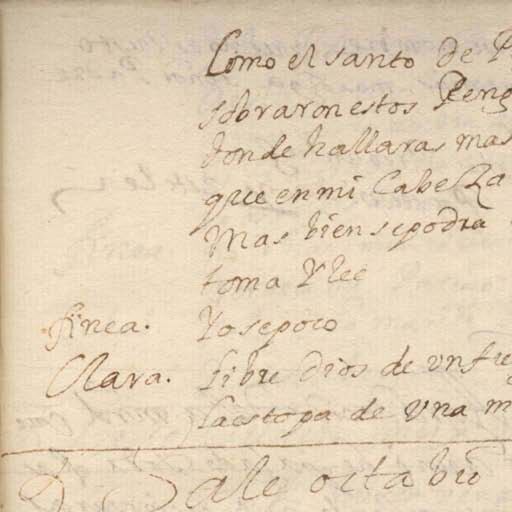 Como el santo de P
sobraron estos Reng
donde hallaras mas
que en mi CabeZa
Mas bien se podra
toma Y lee
finea. Yo se poco
Clara. libre Dios de un fue
la estopa de Una m
Sale octabio